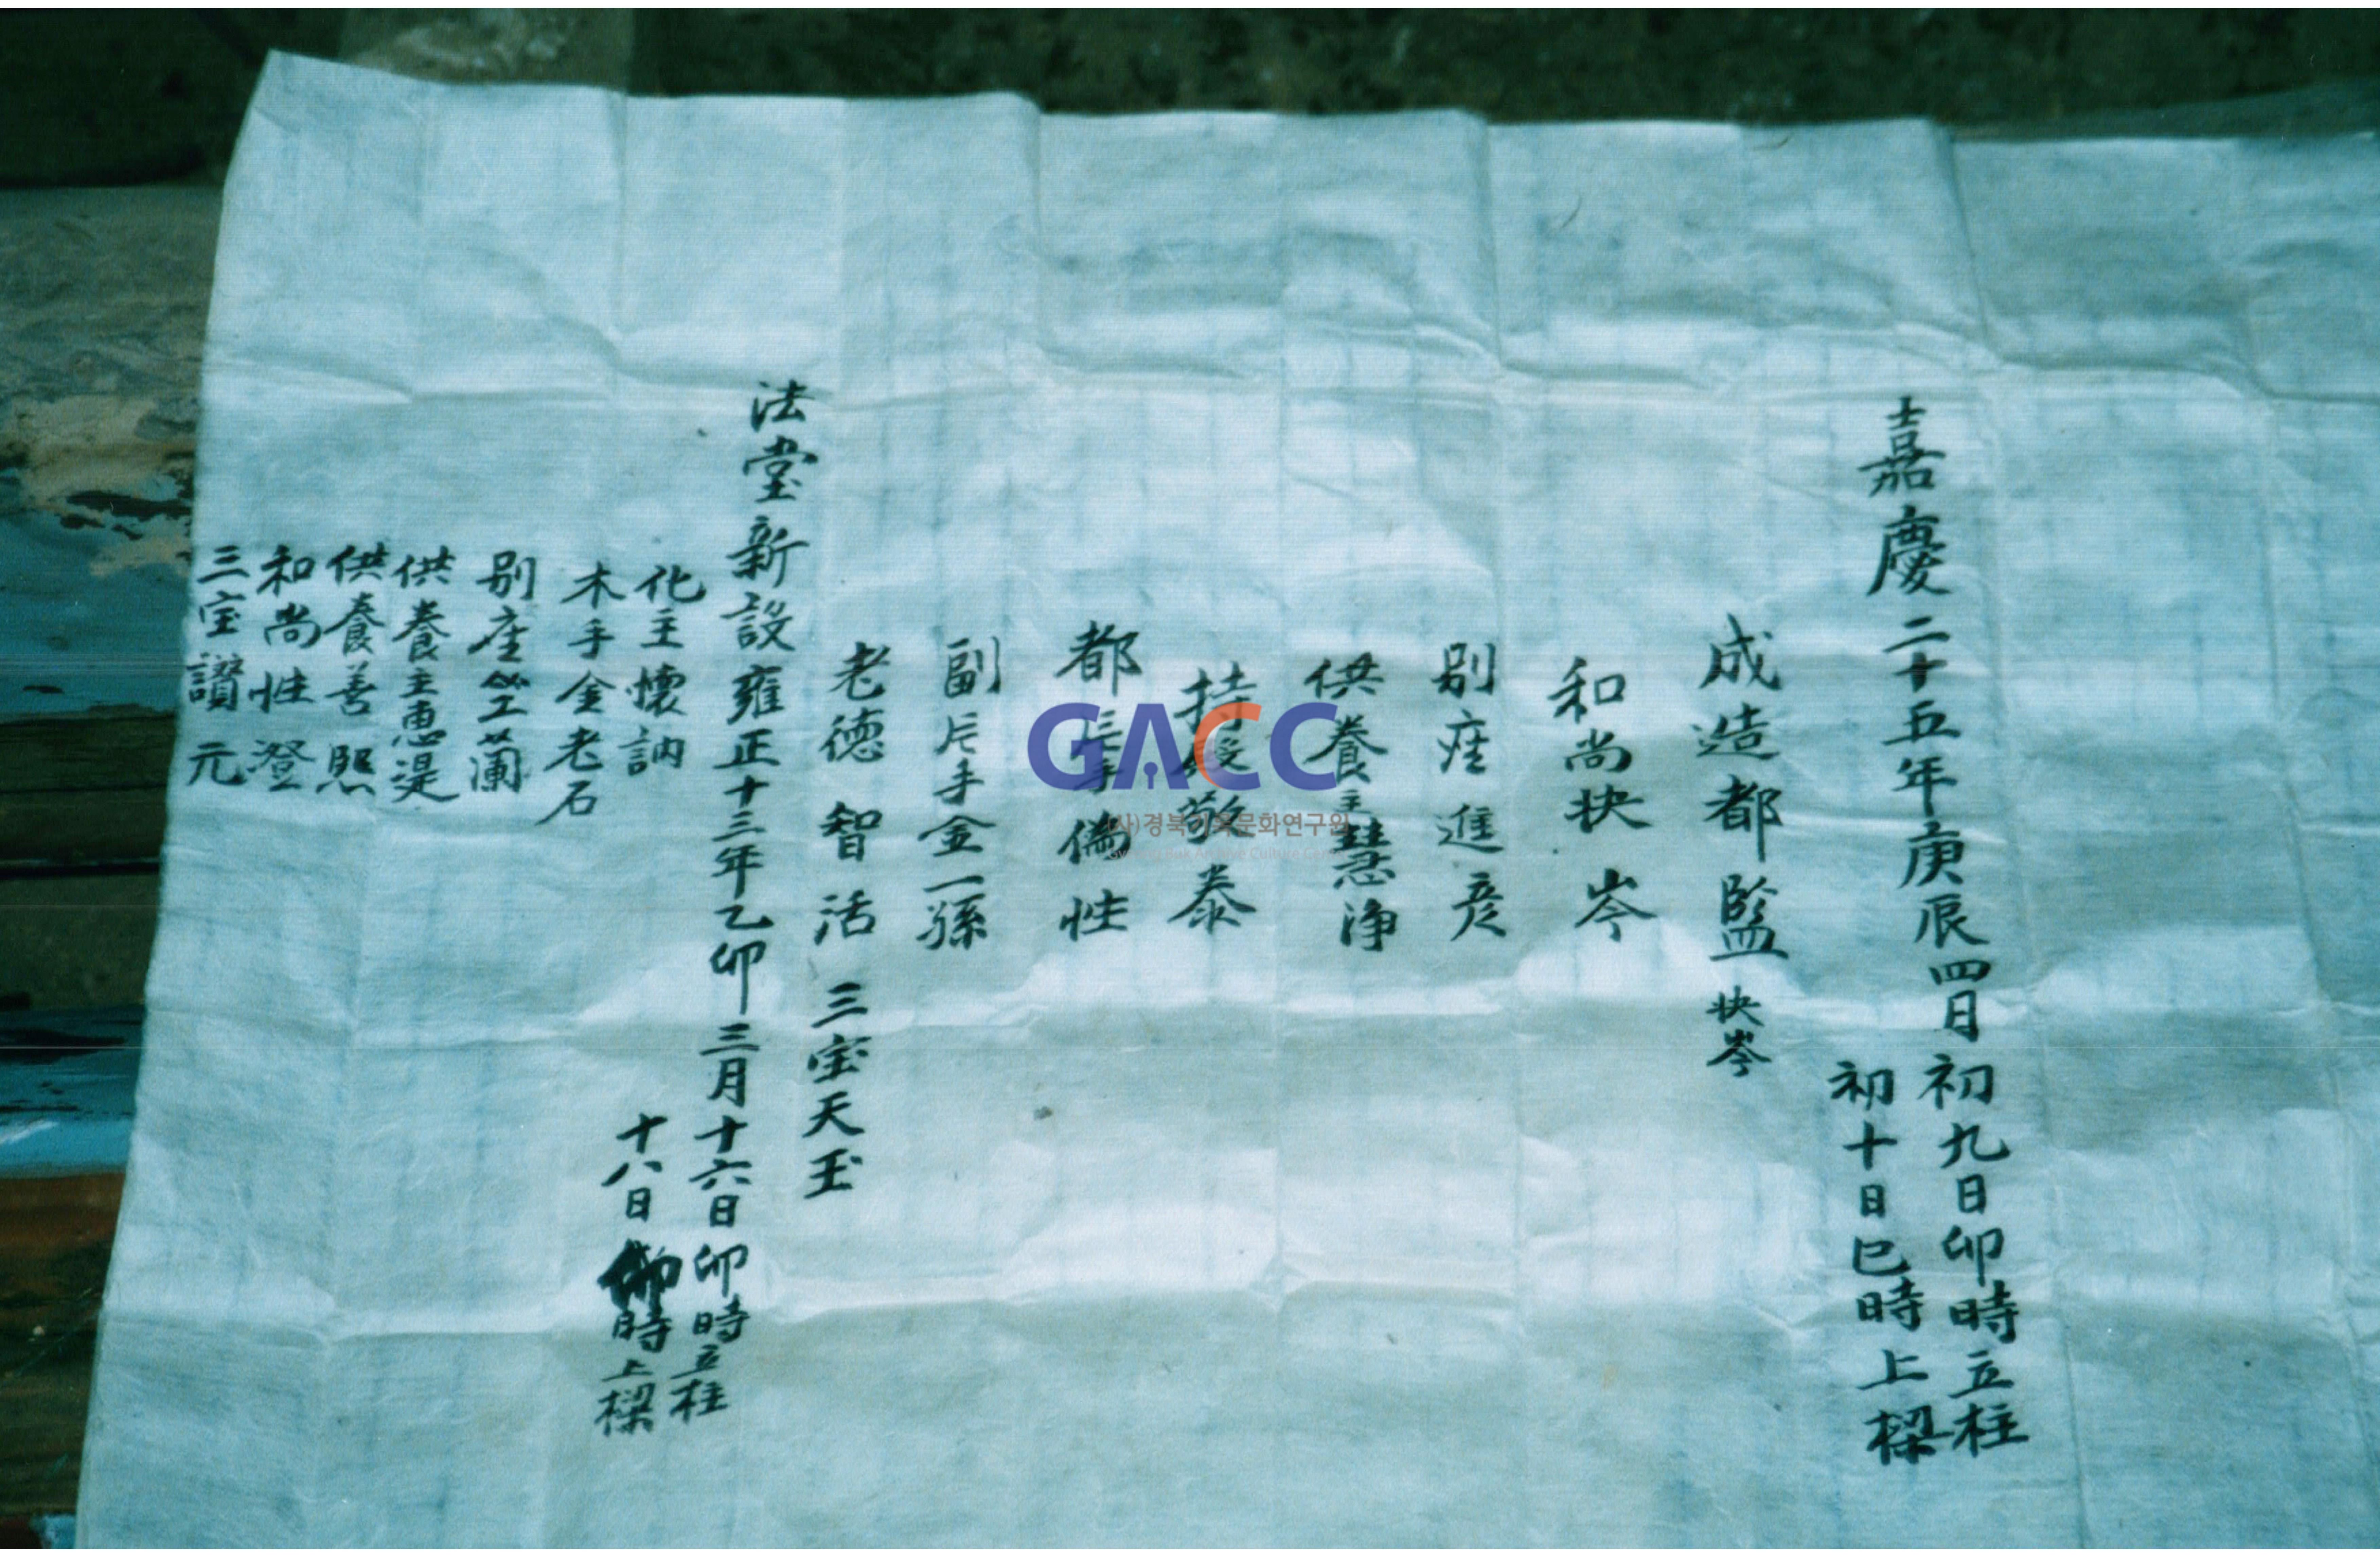 嘉慶二十五年庚辰四月初九日卯時立柱
初十日巳時上樑
成造都監 快岑
和尚快岑
別座進彦
供養主慧淨
持殿敬泰
都片手儒性
副片手金一孫
老德智活 三宝天玉
法堂新設雍正十三年乙卯三月十六日卯時立柱
十八日卯時上樑
化主懷訥
木手金老石
別座竺蘭
供養主惠湜
供養善熙
和尚性澄
三宝讃元
GACC
(사)경북기록문화연구원